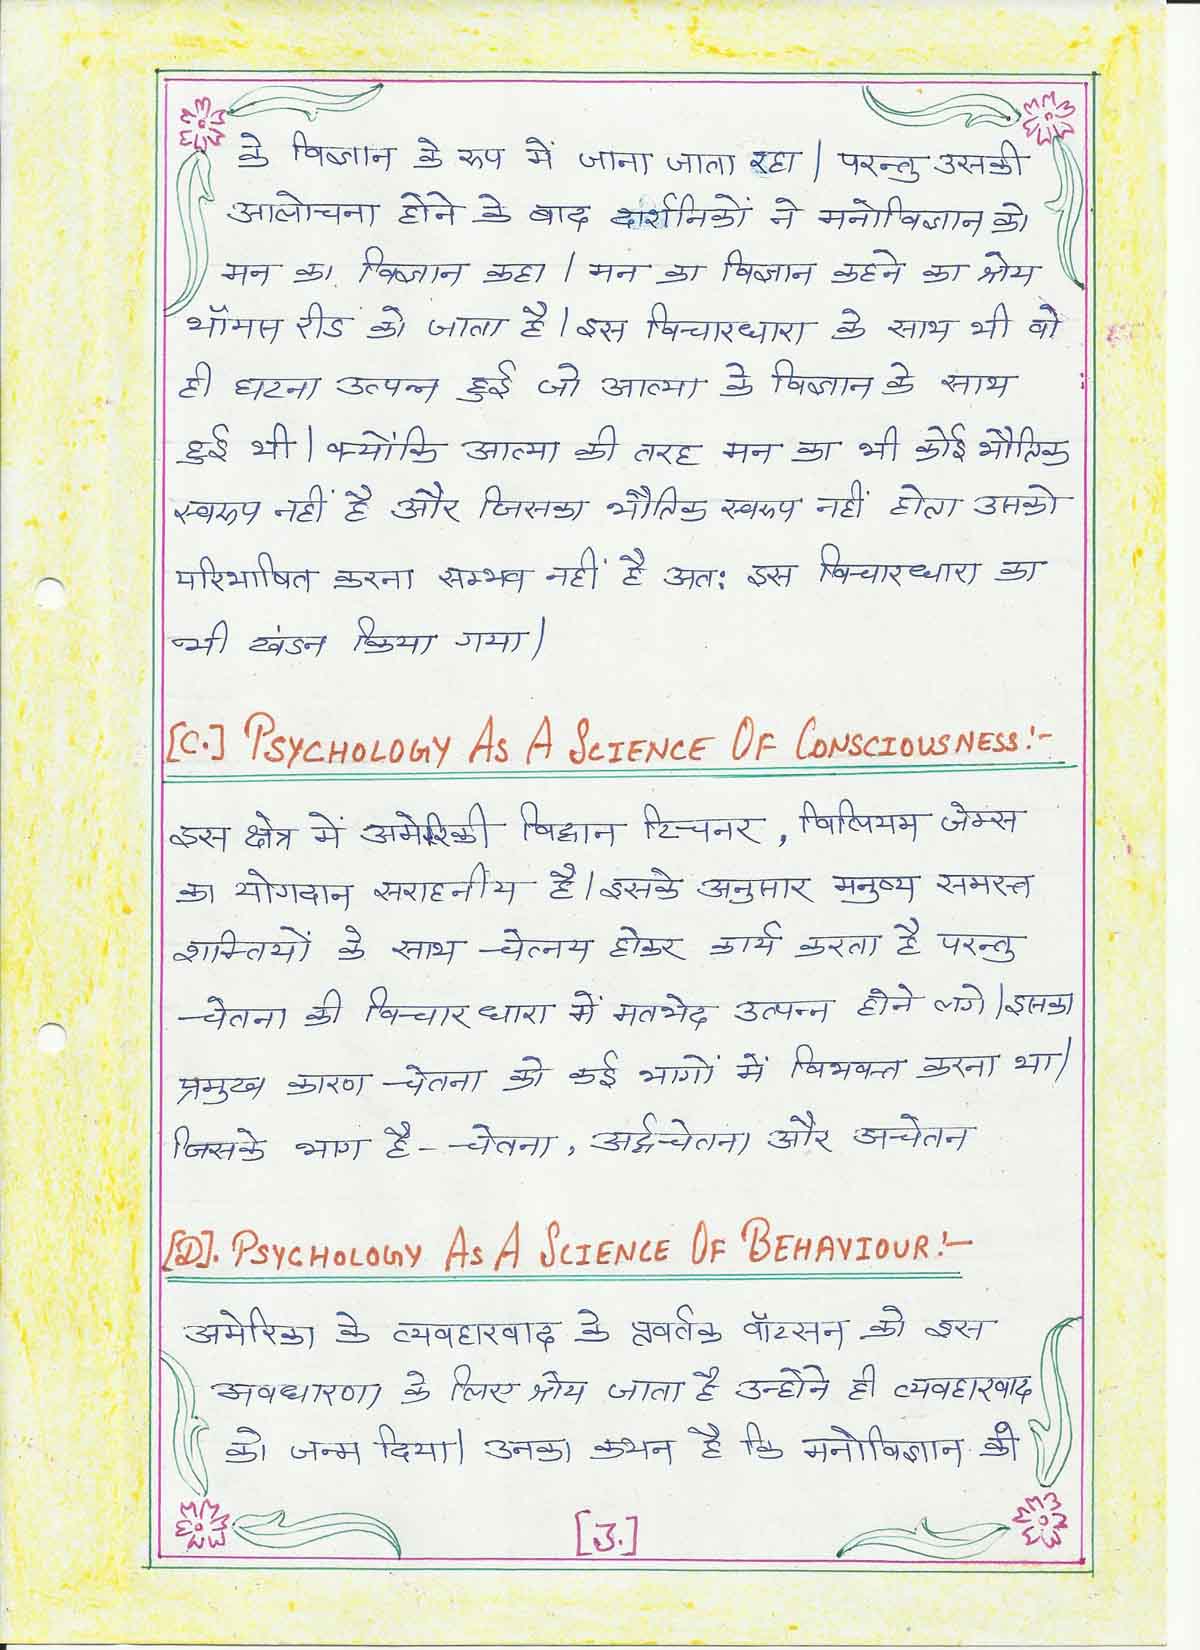 के विज्ञान के रुप में जाना जाता रहा। परन्तु उसकी
आलोचना होने के बाद दार्शनिकों ने मनोविज्ञान को
मन का विज्ञान कहा। मन का विज्ञान कहने का श्रेय
थॉमस रीड को जाता है। इस विचारधारा के साथ भी वो
ही घटना उत्पन्न हुई जो आत्मा के विज्ञान के साथ
हुई थी। क्योंकि आत्मा की तरह मन का भी कोई भौतिक
स्वरुप नहीं है और जिसका भौतिक स्वरुप नहीं होता उसको
परिभाषित करना सम्भव नहीं है अतः इस विचारधारा का
भी खंडन किया गया।
[C.] PSYCHOLOGY AS A SCIENCE OF CONSCIOUSNESS:-
इस क्षेत्र में अमेरिकी विद्वान टिचनर, विलियम जेम्स
का योगदान सराहनीय है। इसके अनुसार मनुष्य समस्त
शक्तियों के साथ चेत्नय होकर कार्य करता है परन्तु
चेतना की विचारधारा में मतभेद उत्पन्न होने लगे। इसका
प्रमुख कारण चेतना को कई भागों में विभक्त करना था।
जिसके भाग है - चेतना, अर्द्धचेतना और अचेतन
[D]. PSYCHOLOGY AS A SCIENCE OF BEHAVIOUR:-
अमेरिका के व्यवहारवाद के प्रवर्तक वॉटसन को इस
अवधारणा के लिए श्रेय जाता है उन्होंने ही व्यवहारवाद
को जन्म दिया। उनका कथन है कि मनोविज्ञान की
[3.]